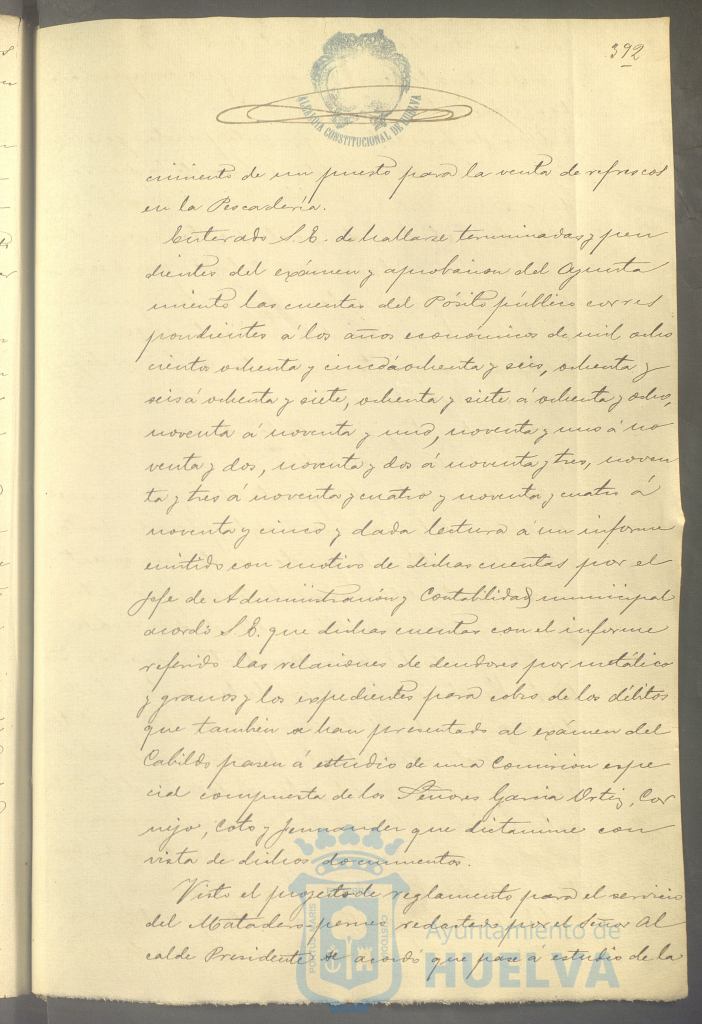 392
ALCALDIA CONSTITUCIONAL DE HUELVA
cimiento de un puesto para la venta de refrescos
en la Pescadería.
Enterado S. E. de hallarse terminadas y pen
dientes del exámen y aprobacion del Ayunta
miento las cuentas del Pósito público corres
pondientes á los años económicos de mil ocho
cientos ochenta y cinco á ochenta y seis, ochenta y
seis á ochenta y siete, ochenta y siete á ochenta y ocho,
noventa á noventa y uno, noventa y uno á no
venta y dos, noventa y dos á noventa y tres, noven
ta y tres á noventa y cuatro y noventa y cuatro á
noventa y cinco y dada lectura á un informe
emitido con motivo de dichas cuentas por el
Jefe de Administración y Contabilidad municipal
acordó S. E. que dichas cuentas con el informe
referido las relaciones de deudores por metálico
y granos y los expedientes para cobro de los débitos
que tambien se han presentado al exámen del
Cabildo pasen á estudio de una Comision espe
cial compuesta de los Señores Garcia Ortiz, Cor
nejo, Coto y Jernander que dictamine con
vista de dichos documentos.
Visto el proyecto de reglamento para el servicio
del Matadero redactado por el Señor Al
calde Presidente se acordó que pase á estudio de la
Ayuntamiento de
HUELVA